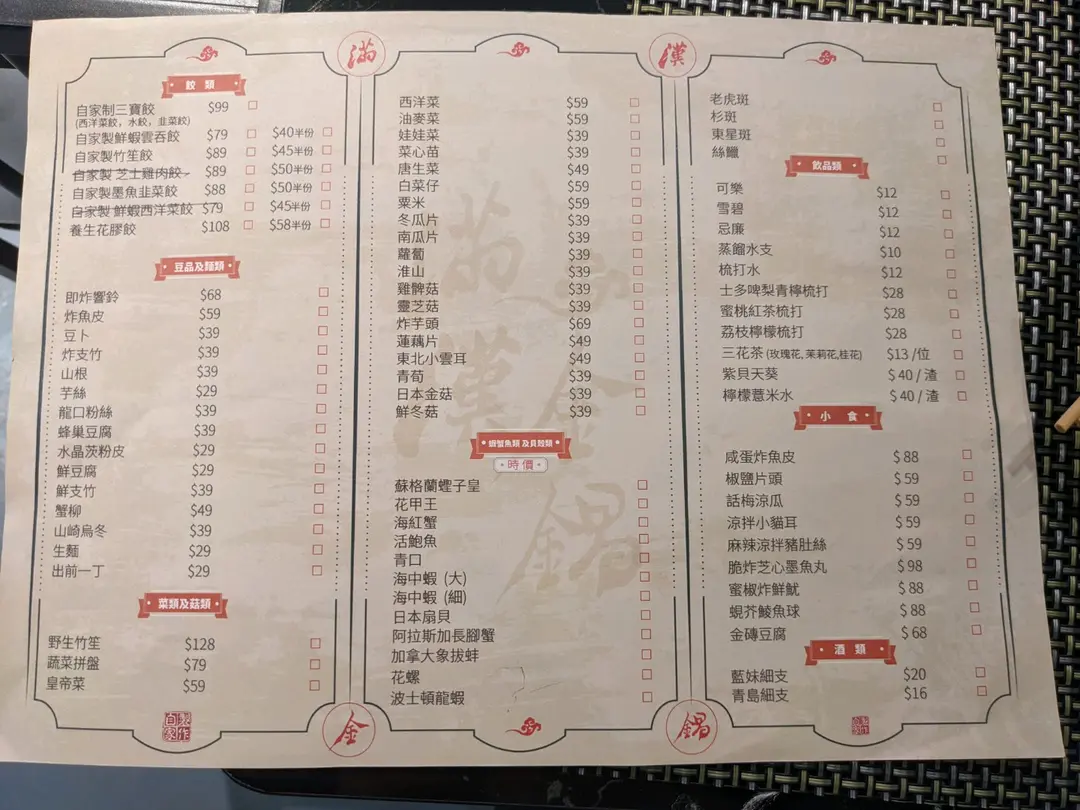 滿
漢
餃 類
自家制三寶餃 $99 
(西洋菜餃，水餃，韭菜餃)
自家製鮮蝦雲吞餃 $79 $40半份
自家製竹笙餃 $89 $45半份
自家製 芝士雞肉餃 $89 $50半份
自家製墨魚韭菜餃 $88 $50半份
自家製 鮮蝦西洋菜餃 $79 $45半份
養生花膠餃 $108 $58半份
豆品及麵類
即炸響鈴 $68
炸魚皮 $59
豆卜 $39
炸支竹 $39
山根 $39
芋絲 $29
龍口粉絲 $39
蜂巢豆腐 $39
水晶茨粉皮 $29
鮮豆腐 $29
鮮支竹 $39
蟹柳 $49
山崎烏冬 $39
生麵 $29
出前一丁 $29
菜類及菇類
野生竹笙 $128
蔬菜拼盤 $79
皇帝菜 $59
西洋菜 $59
油麥菜 $59
娃娃菜 $39
菜心苗 $39
唐生菜 $49
白菜仔 $59
粟米 $59
冬瓜片 $39
南瓜片 $39
蘿蔔 $39
淮山 $39
雞髀菇 $39
靈芝菇 $39
炸芋頭 $69
蓮藕片 $49
東北小雲耳 $49
青荀 $39
日本金菇 $39
鮮冬菇 $39
蝦蟹魚類 及貝殼類
時價
蘇格蘭蟶子皇
花甲王
海紅蟹
活鮑魚
青口
海中蝦 (大)
海中蝦 (細)
日本扇貝
阿拉斯加長腳蟹
加拿大象拔蚌
花螺
波士頓龍蝦
老虎斑
杉斑
東星斑
絲鱲
飲品類
可樂 $12
雪碧 $12
忌廉 $12
蒸餾水支 $10
梳打水 $12
士多啤梨青檸梳打 $28
蜜桃紅茶梳打 $28
荔枝檸檬梳打 $28
三花茶 (玫瑰花, 茉莉花,桂花) $13 /位
紫貝天葵 $ 40 / 渣
檸檬薏米水 $ 40 / 渣
小 食
咸蛋炸魚皮 $ 88
椒鹽片頭 $ 59
話梅涼瓜 $ 59
涼拌小貓耳 $ 59
麻辣涼拌豬肚絲 $ 59
脆炸芝心墨魚丸 $ 98
蜜椒炸鮮魷 $ 88
蜆芥鯪魚球 $ 88
金磚豆腐 $ 68
酒 類
藍妹細支 $20
青島細支 $16
金
鍋